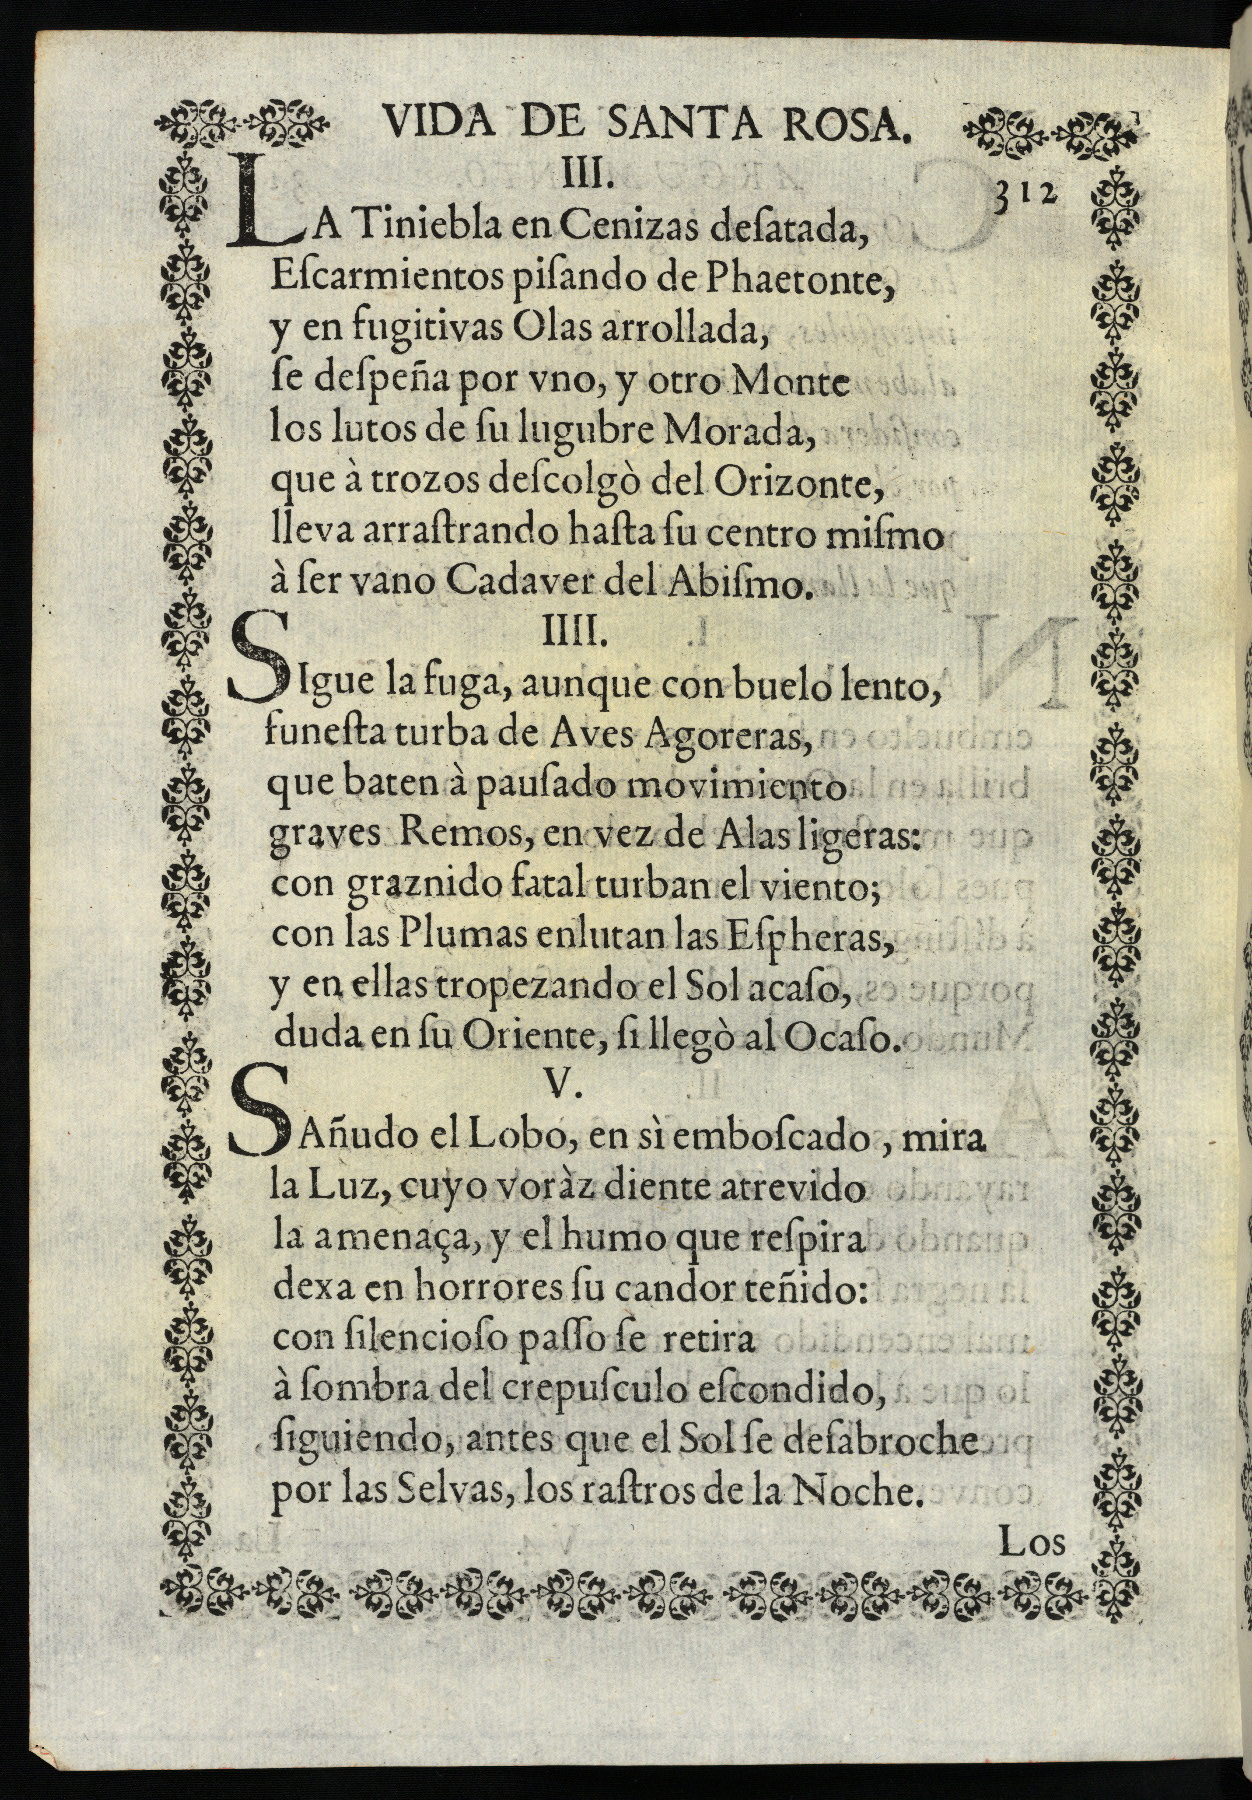 VIDA DE SANTA ROSA.
III.
312
LA Tiniebla en Cenizas deſatada,
Eſcarmientos piſando de Phaetonte,
y en fugitivas Olas arrollada,
ſe deſpeña por vno, y otro Monte
los lutos de ſu lugubre Morada,
que à trozos deſcolgò del Orizonte,
lleva arraſtrando haſta ſu centro miſmo
à ſer vano Cadaver del Abiſmo.
IIII.
SIgue la fuga, aunque con buelo lento,
funeſta turba de Aves Agoreras,
que baten à pauſado movimiento
graves Remos, en vez de Alas ligeras:
con graznido fatal turban el viento;
con las Plumas enlutan las Eſpheras,
y en ellas tropezando el Sol acaſo,
duda en ſu Oriente, ſi llegò al Ocaſo.
V.
SAñudo el Lobo, en sì emboſcado, mira
la Luz, cuyo voràz diente atrevido
la amenaça, y el humo que reſpira
dexa en horrores ſu candor teñido:
con ſilencioſo paſſo ſe retira
à ſombra del crepuſculo eſcondido,
ſiguiendo, antes que el Sol ſe deſabroche
por las Selvas, los raſtros de la Noche.
Los